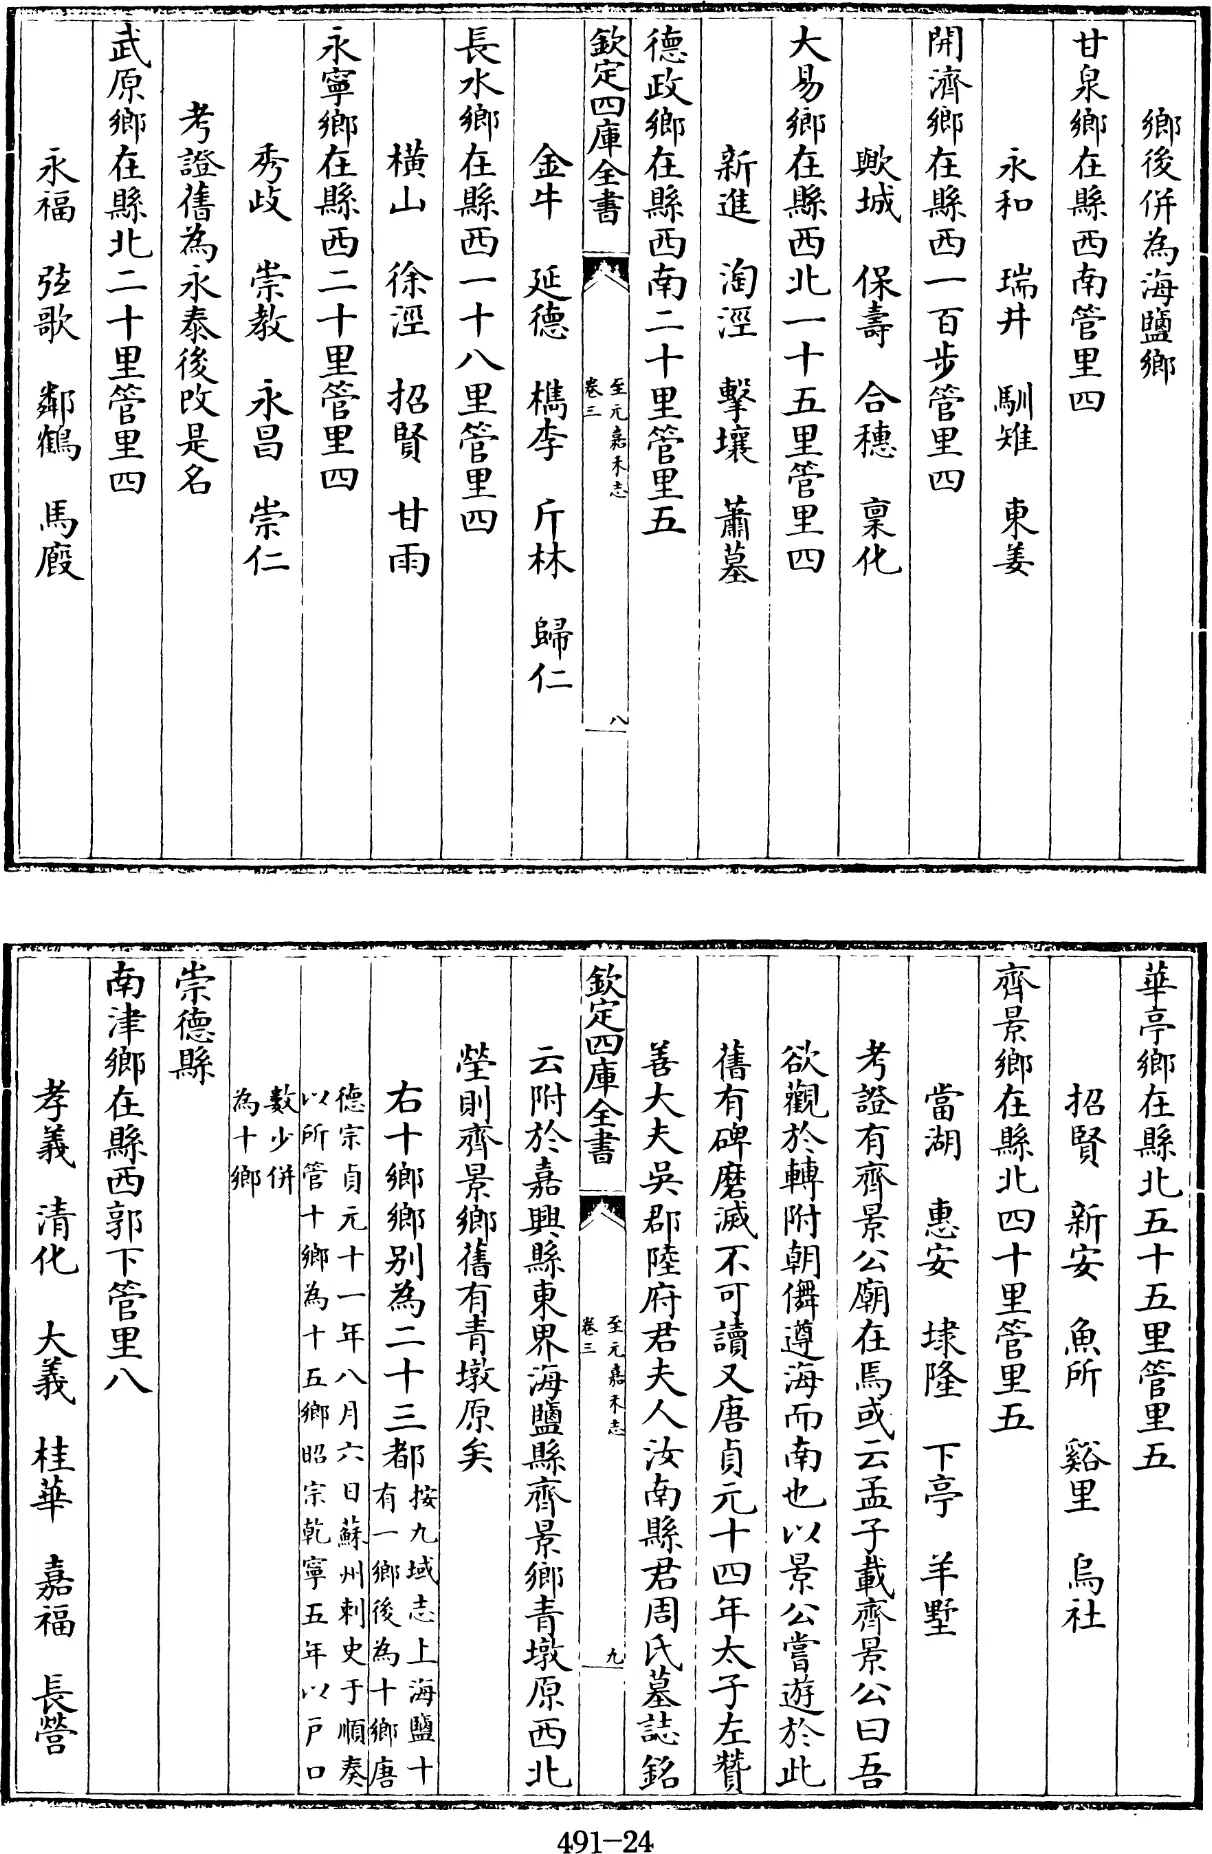 鄉後併為海鹽鄉
甘泉鄉在縣西南管里四
永和 瑞井 馴雉 東姜
開濟鄉在縣西一百步管里四
歟城 保壽 合穗 稟化
大易鄉在縣西北一十五里管里四
新進 淘涇 擊壤 蕭墓
德政鄉在縣西南二十里管里五
欽定四庫全書
至元嘉禾志
卷三
八
金牛 延德 檇李 斤林 歸仁
長水鄉在縣西一十八里管里四
橫山 徐涇 招賢 甘雨
永寧鄉在縣西二十里管里四
秀歧 崇教 永昌 崇仁
考證舊為永泰後改是名
武原鄉在縣北二十里管里四
永福 弦歌 鄰鶴 馬廄
華亭鄉在縣北五十五里管里五
招賢 新安 魚所 谿里 烏社
齊景鄉在縣北四十里管里五
當湖 惠安 埭隆 下亭 羊墅
考證有齊景公廟在焉或云孟子載齊景公曰吾
欲觀於轉附朝儛遵海而南也以景公嘗遊於此
舊有碑磨滅不可讀又唐貞元十四年太子左贊
善大夫吳郡陸府君夫人汝南縣君周氏墓誌銘
欽定四庫全書
至元嘉禾志
卷三
九
云附於嘉興縣東界海鹽縣齊景鄉青墩原西北
塋則齊景鄉舊有青墩原矣
右十鄉鄉别為二十三都
按九域志上海鹽十
有一鄉後為十鄉唐
德宗貞元十一年八月六日蘇州刺史于順奏
以所管十鄉為十五鄉昭宗乾寧五年以戸口
數少併
為十鄉
崇德縣
南津鄉在縣西郭下管里八
孝義 清化 大義 桂華 嘉福 長營
491-24